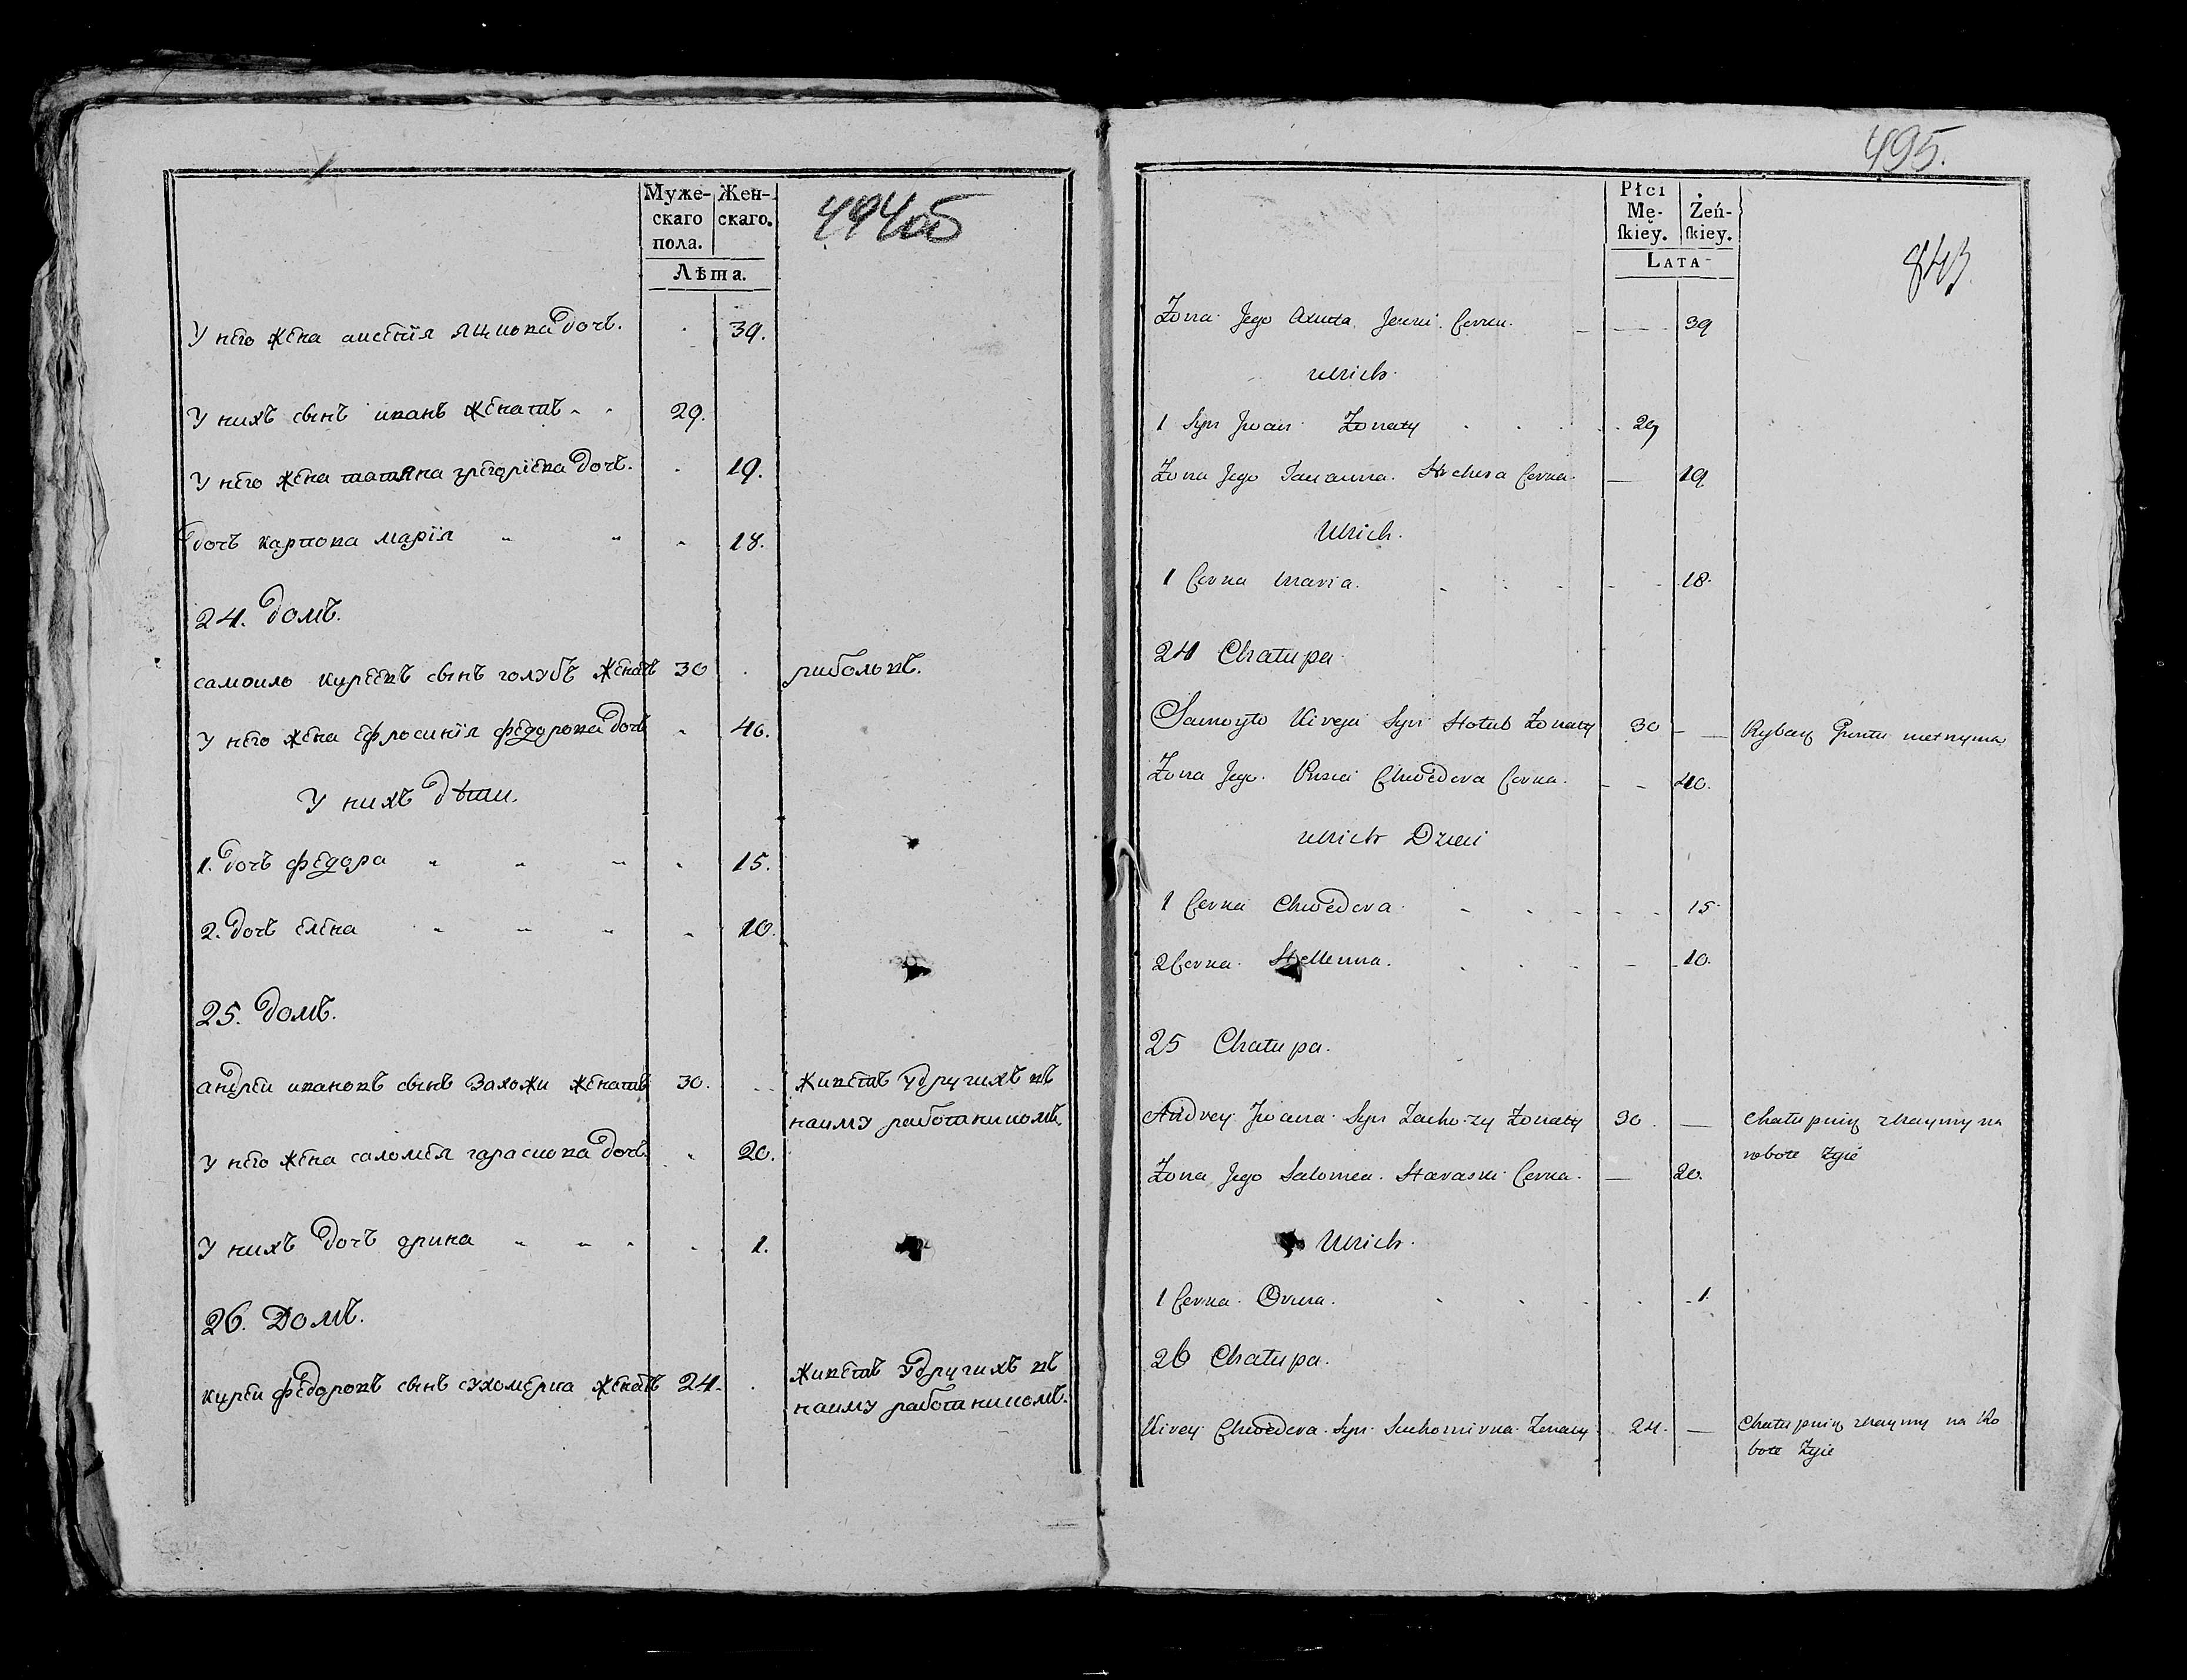 494об
Муже-
скаго
пола.
Жен-
скаго.
Лѣта.
У него жена ксенїя яцкова дочь. 39.
У нихъ сынъ иванъ женатъ 29.
У него жена татяна григорїева дочь. 19.
дочь карпова марїя 18.
24. домъ.
самоило киреевъ сынъ голубъ женатъ 30 риболовъ.
У него жена ефросинїя федорова дочь 40.
У нихъ дѣти.
1. дочь федора 15.
2. дочь елена 10.
25. домъ.
андрей ивановъ сынъ захожи женатъ 30. живетъ у другихъ въ
найму работникомъ.
У него жена саломея гараскова дочь. 20.
У нихъ дочь орина 1.
26. Домъ.
кирей федоровъ сынъ сухомерка женатъ 24. живетъ у другихъ въ
найму работникомъ.
495.
843
Płci
Mę-
skiey.
Żeń-
skiey.
LATA
Żona Jego Corka 39
u nich
1 Syn Jwan Żonaty 29
Żona Jego Corka 19
U nich.
1 Corka Maria. 18.
24 Chałupa
Samoyło Kireja Syn Hołub Żonaty 30 Rybak
Żona Jego Chwedora Corka. 40.
u nich Dzieci
1 Corka Chwedora 15
2 Corka Hellenna. 10.
25 Chałupa.
Andrey Jwana Syn Zachozy Żonaty 30. Chałupnik z naymy na
robote żyie
Żona Jego Salomea. Haraski Corka. 20.
U nich.
1 Corka Orina. 1
26 Chałupa.
Kirey Chwedora Syn Suchomirka Żonaty 24. Chałupnik z naymy na Ro
bote Żyie